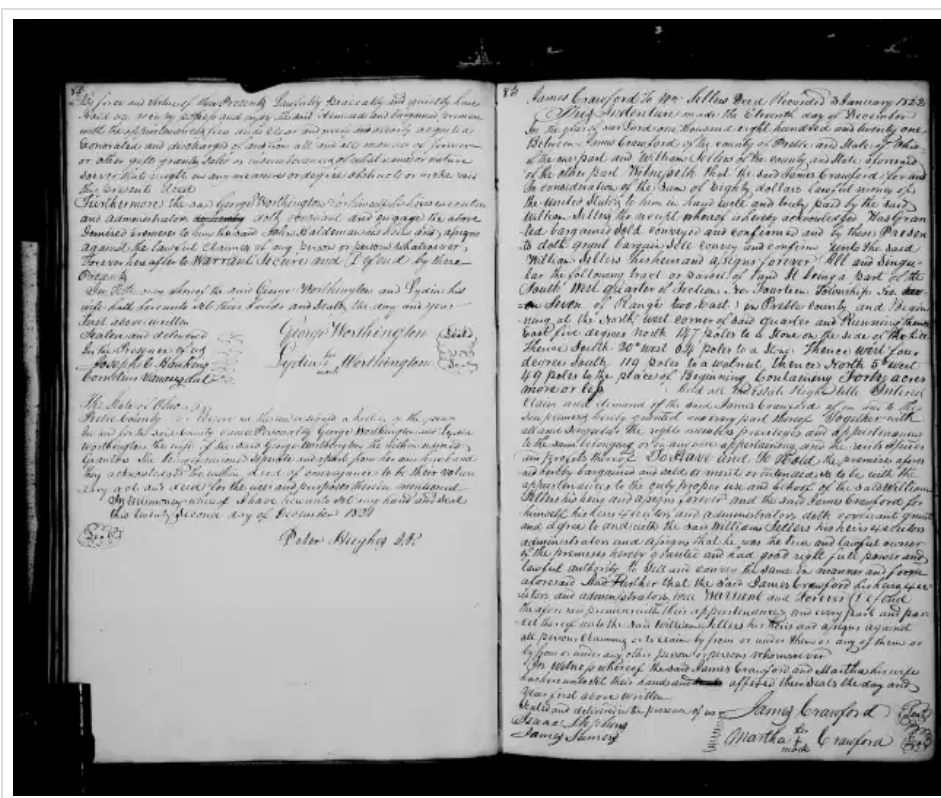 84
By force and virtue of these Presents Lawfully peaceably and quietly have
hold use occupy possess and enjoy the said demised and bargained premises
with the appurtenances free and clear and freely and clearly acquited
Exonerated and discharged of and from all and all manner of former
or other gifts grants sales or incumberances of what name or nature
soever that might in any measure or degree obstruct or make void
this present Deed
Furthermore the said George Worthington for himself his heirs executors
and administrators doth covenant and engage the above
Demised premises to him the said John Haldeman his heirs and assigns
against the lawful claimes of any person or persons whatsoever,
forever hereafter to Warrant Secure and Defend by these
Presents
In Testimony where of the said George Worthington and Lydia his
wife hath hereunto set their hands and Seals the day and year
first above written
Sealed and delivered
In the Presence of us
Joseph C. Hawkins
Cornelius Vanausdal
George Worthington Seal
Lydia her mark Worthington Seal
The State of Ohio
Preble County
Before me the undersigned a Justice of the peace
in and for the said County came Personally George Worthington and Lydia
Worthington the wife of the said George Worthington the within named
Grantors She being examined seperate and apart from her said husband
they acknowledged the within Deed of conveyance to be their volun
tary act and deed for the uses and purposes therein mentioned
In testimony whereof I have hereunto set my hand and seal
this twenty second day of December 1821
Seal
Peter Hughes J.P.
85
James Crawford To Wm Sellers Deed Recorded 3 January 1822
This Indenture made the Eleventh day of December
In the year of our Lord one thousand eight hundred and twenty one
Between James Crawford of the county of Preble and State of Ohio
of the one part and William Sellers of the county and State aforesaid
of the other part Witnesseth that the said James Crawford for and
In consideration of the Sum of Eighty dollars lawful money of
the United States to him in hand well and truly paid by the said
William Sellers the receipt whereof is hereby acknowledged Has Gran
ted bargained Sold conveyed and confirmed and by these Presen
ts doth grant bargain Sell convey and confirm unto the said
William Sellers his heirs and assigns forever All and Singu
lar the following tract or parcel of land It being a part of the
South West quarter of Section No Fourteen Township No
Seven of Range two East in Preble county and Begin
ning at the North west corner of said quarter and Running thence
East five degrees North 147 poles to a Stone on the side of the hill
Thence South 20° west 64 poles to a Stone Thence west four
degrees South 119 poles to a walnut, thence North 5° west
49 poles to the place of Beginning Containing Forty acres
more or less
and all the Estate Right title Interest
Claim and demand of the said James Crawford of in and to the
said premises hereby granted and every part thereof Together with
all and Singular the rights members priviledges and appurtenances
to the same belonging or in any wise appertaining and the rents issues
and profits thereof To Have and to Hold the premises afore
said hereby bargained and sold or meant or intended so to be with the
appurtenances to the only proper use and behoof of the said William
Sellers his heirs and assigns forever and the said James Crawford for
himself his heirs executors and administrators doth covenant grant
and agree to and with the said William Sellers his heirs executors
administrators and assigns that he was the true and lawful owner
of the premises hereby granted and had good right full power and
lawful authority to Sell and convey the same in manner and form
aforesaid And Further that the said James Crawford his heirs exe
cutors and administrators will Warrant and forever Defend
the aforesaid premises with their appurtenances and every part and par
cel thereof unto the said William Sellers his heirs and assigns against
all persons Claiming or to claim by from or under them or any of them or
by from or under any other person or persons whomsoever
In witness whereof the said James Crawford and Martha his wife
hath hereunto set their hands and affixed their Seals the day and
Year first above written
Sealed and delivered in the presence of us
Isaac Stephens
James Sumers
James Crawford Seal
Martha her mark Crawford Seal